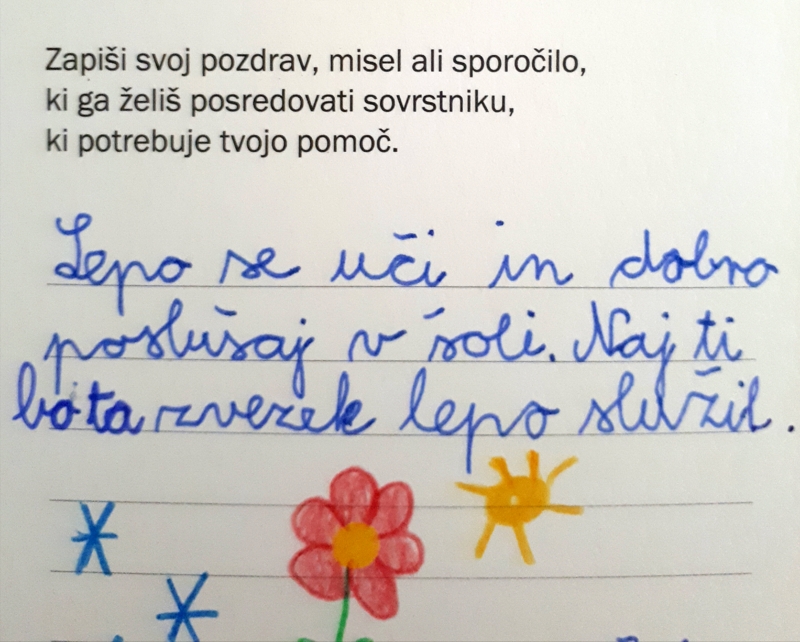 Zapiši svoj pozdrav, misel ali sporočilo,
ki ga želiš posredovati sovrstniku,
ki potrebuje tvojo pomoč.
Lepo se uči in dobro
poslušaj v šoli. Naj ti
bo ta zvezek lepo služil.